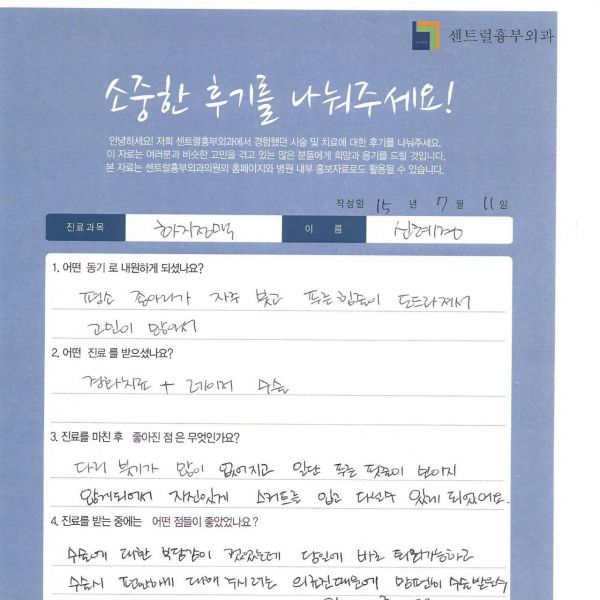 센트럴흉부외과
소중한 후기를 나눠주세요!
안녕하세요! 저희 센트럴흉부외과에서 경험했던 시술 및 치료에 대한 후기를 나눠주세요.
이 자료는 여러분과 비슷한 고민을 겪고 있는 많은 분들에게 희망과 용기를 드릴 것입니다.
본 자료는 센트럴흉부외과의원의 홈페이지와 병원 내부 홍보자료로도 활용될 수 있습니다.
작성일 15 년 7 월 11 일
진료과목 하지정맥 이 름 신혜경
1. 어떤 동기로 내원하게 되셨나요?
평소 종아리가 자주 붓고 푸른힘줄이 도드라져서
고민이 많아서
2. 어떤 진료를 받으셨나요?
경화치료 + 레이저 수술
3. 진료를 마친 후 좋아진 점은 무엇인가요?
다리 붓기가 많이 없어지고 일단 푸른 핏줄이 보이지
않게되어서 자신있게 스커트를 입고 다닐수 있게 되었어요.
4. 진료를 받는 중에는 어떤 점들이 좋았었나요?
수술에 대한 부담감이 컸었는데 당일에 바로 퇴원가능하고
수술시 편안하게 대해 주시려는 의료진때문에 수술받을수